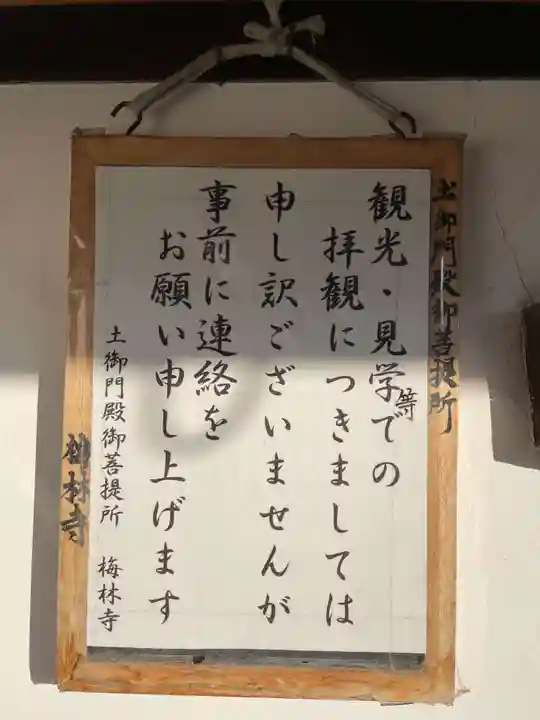 土御門殿御菩提所
観光・見学等での
拝観につきましては
申し訳ございませんが
事前に連絡を
お願い申し上げます
土御門殿御菩提所 梅林寺
梅林寺